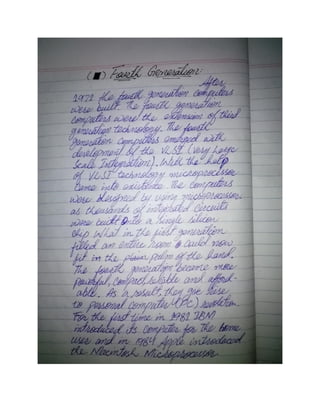 (■) Fourth Generation:
After
1971 the fourth generation computers
were built. The fourth generation
computers were the extension of third
generation technology. The fourth
generation computers emerged with
development of the VLSI (Very Large
Scale Integration). With the help
of VLSI technology microprocessor
came into existence. The computers
were designed by using microprocessor
as thousands of integrated circuits
were built onto a single silicon
chip. What in the first generation
filled an entire room could now
fit in the palm of the hand.
The fourth generation became more
powerful, compact, reliable and afford-
able. As a result, they gave rise
to personal computer (PC) revolution.
For the first time in 1981 IBM
introduced its computer for the home
user and in 1984 Apple introduced
the Macintosh Microprocessor.